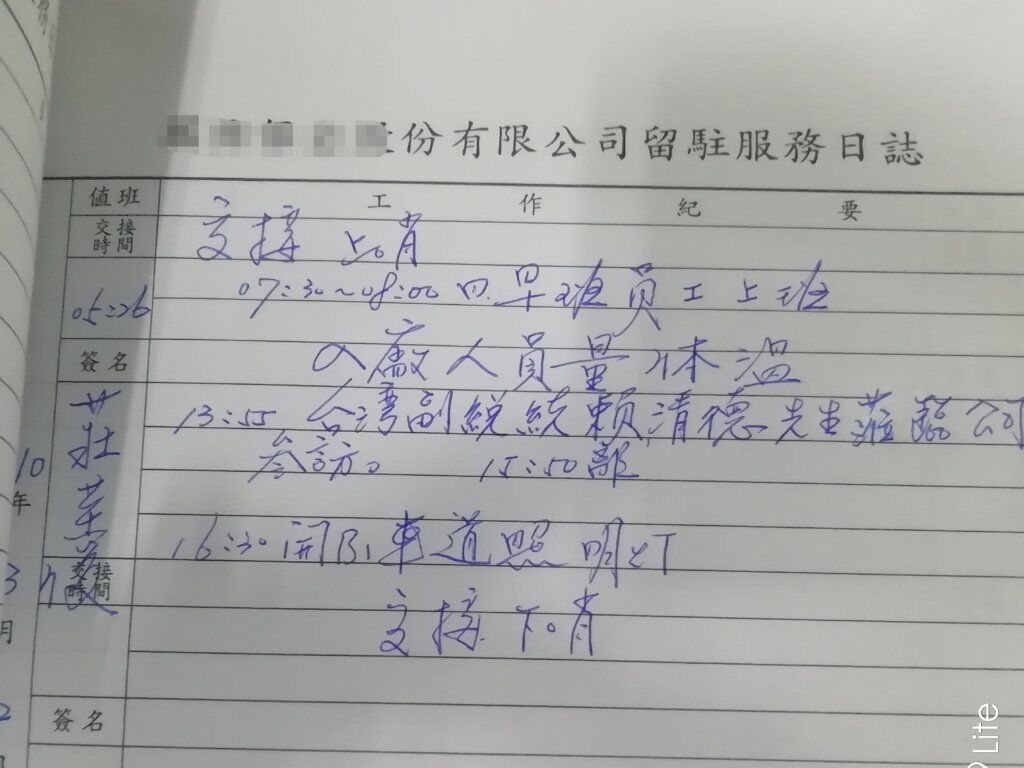 份有限公司留駐服務日誌
值班
工作紀要
交接時間
交接 上哨
05:26
07:30~08:00 早班员工上班
簽名
入廠人員量体温
13:55 台灣副總統賴清德先生蒞臨公司
參訪。 15:50離
10
年
16:30 開B1車道照明灯
3
交接時間
月
交接 下哨
簽名
Lite